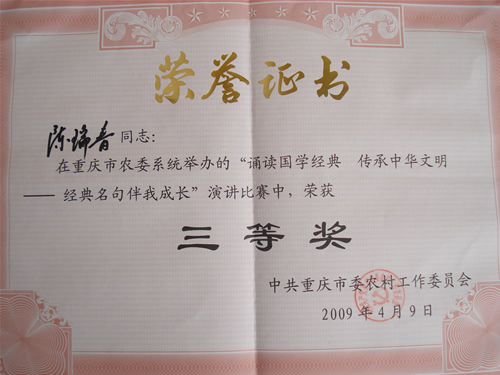 荣誉证书
陈瑞香 同志：
在重庆市农委系统举办的“诵读国学经典 传承中华文明
—— 经典名句伴我成长”演讲比赛中，荣获
三等奖
中共重庆市委农村工作委员会
2009年4月9日